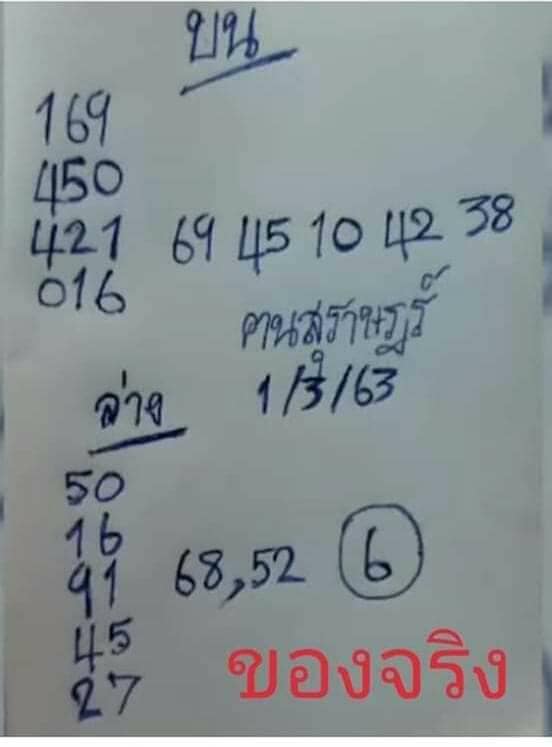 บน
169
450
421 69 45 10 42 38
016
คนสุราษฎร์
1/3/63
ล่าง
50
16
91 68,52 6
45
27
ของจริง